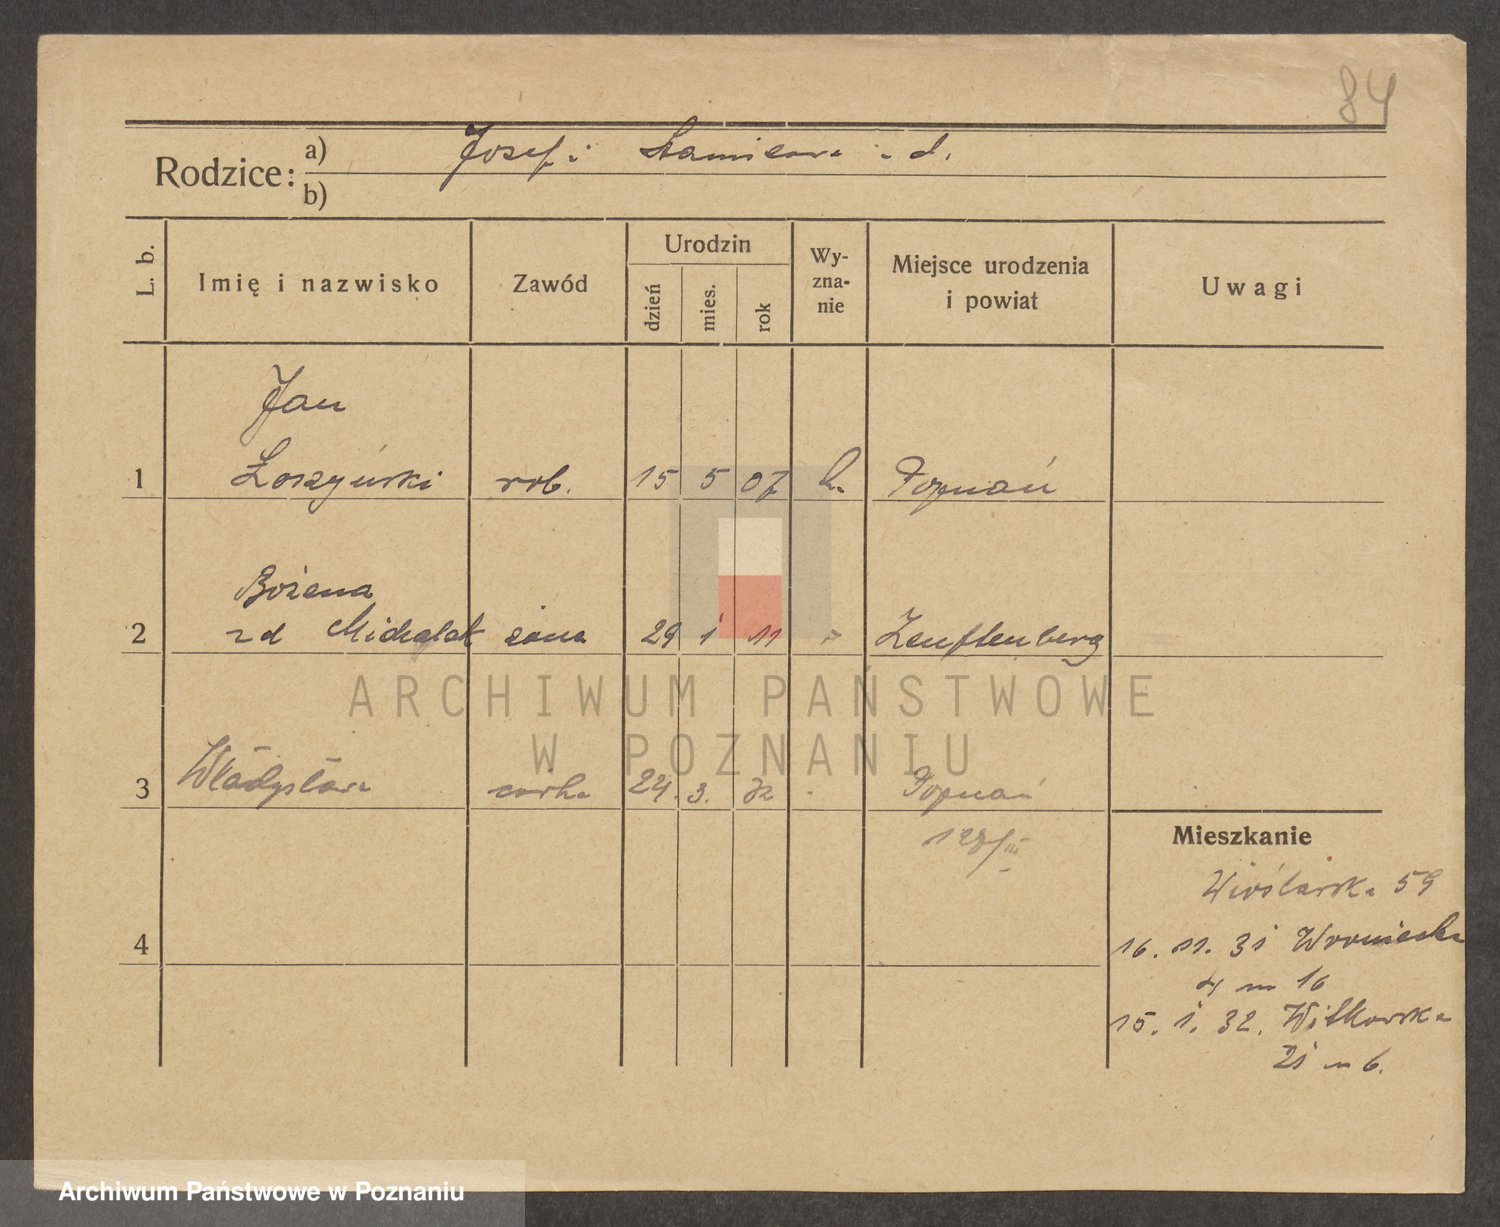 84
Rodzice: a) Józef i
b)
L. b. Imię i nazwisko Zawód Urodzin dzień mies. rok Wy-zna-nie Miejsce urodzenia i powiat Uwagi
Jan
1 Łoszyński rob. 15 5 07 k. Poznań
Bożena
2 zd Michalak żona 29 1 11 Zenftenberg
ARCHIWUM PAŃSTWOWE
W POZNANIU
3 Władysława córka 24. 3. 32 Poznań
128/III
Mieszkanie
59
4
16. 11. 31 Wroniecka
4 m 16
15. 1. 32. Witkowska
21 m 6.
Archiwum Państwowe w Poznaniu